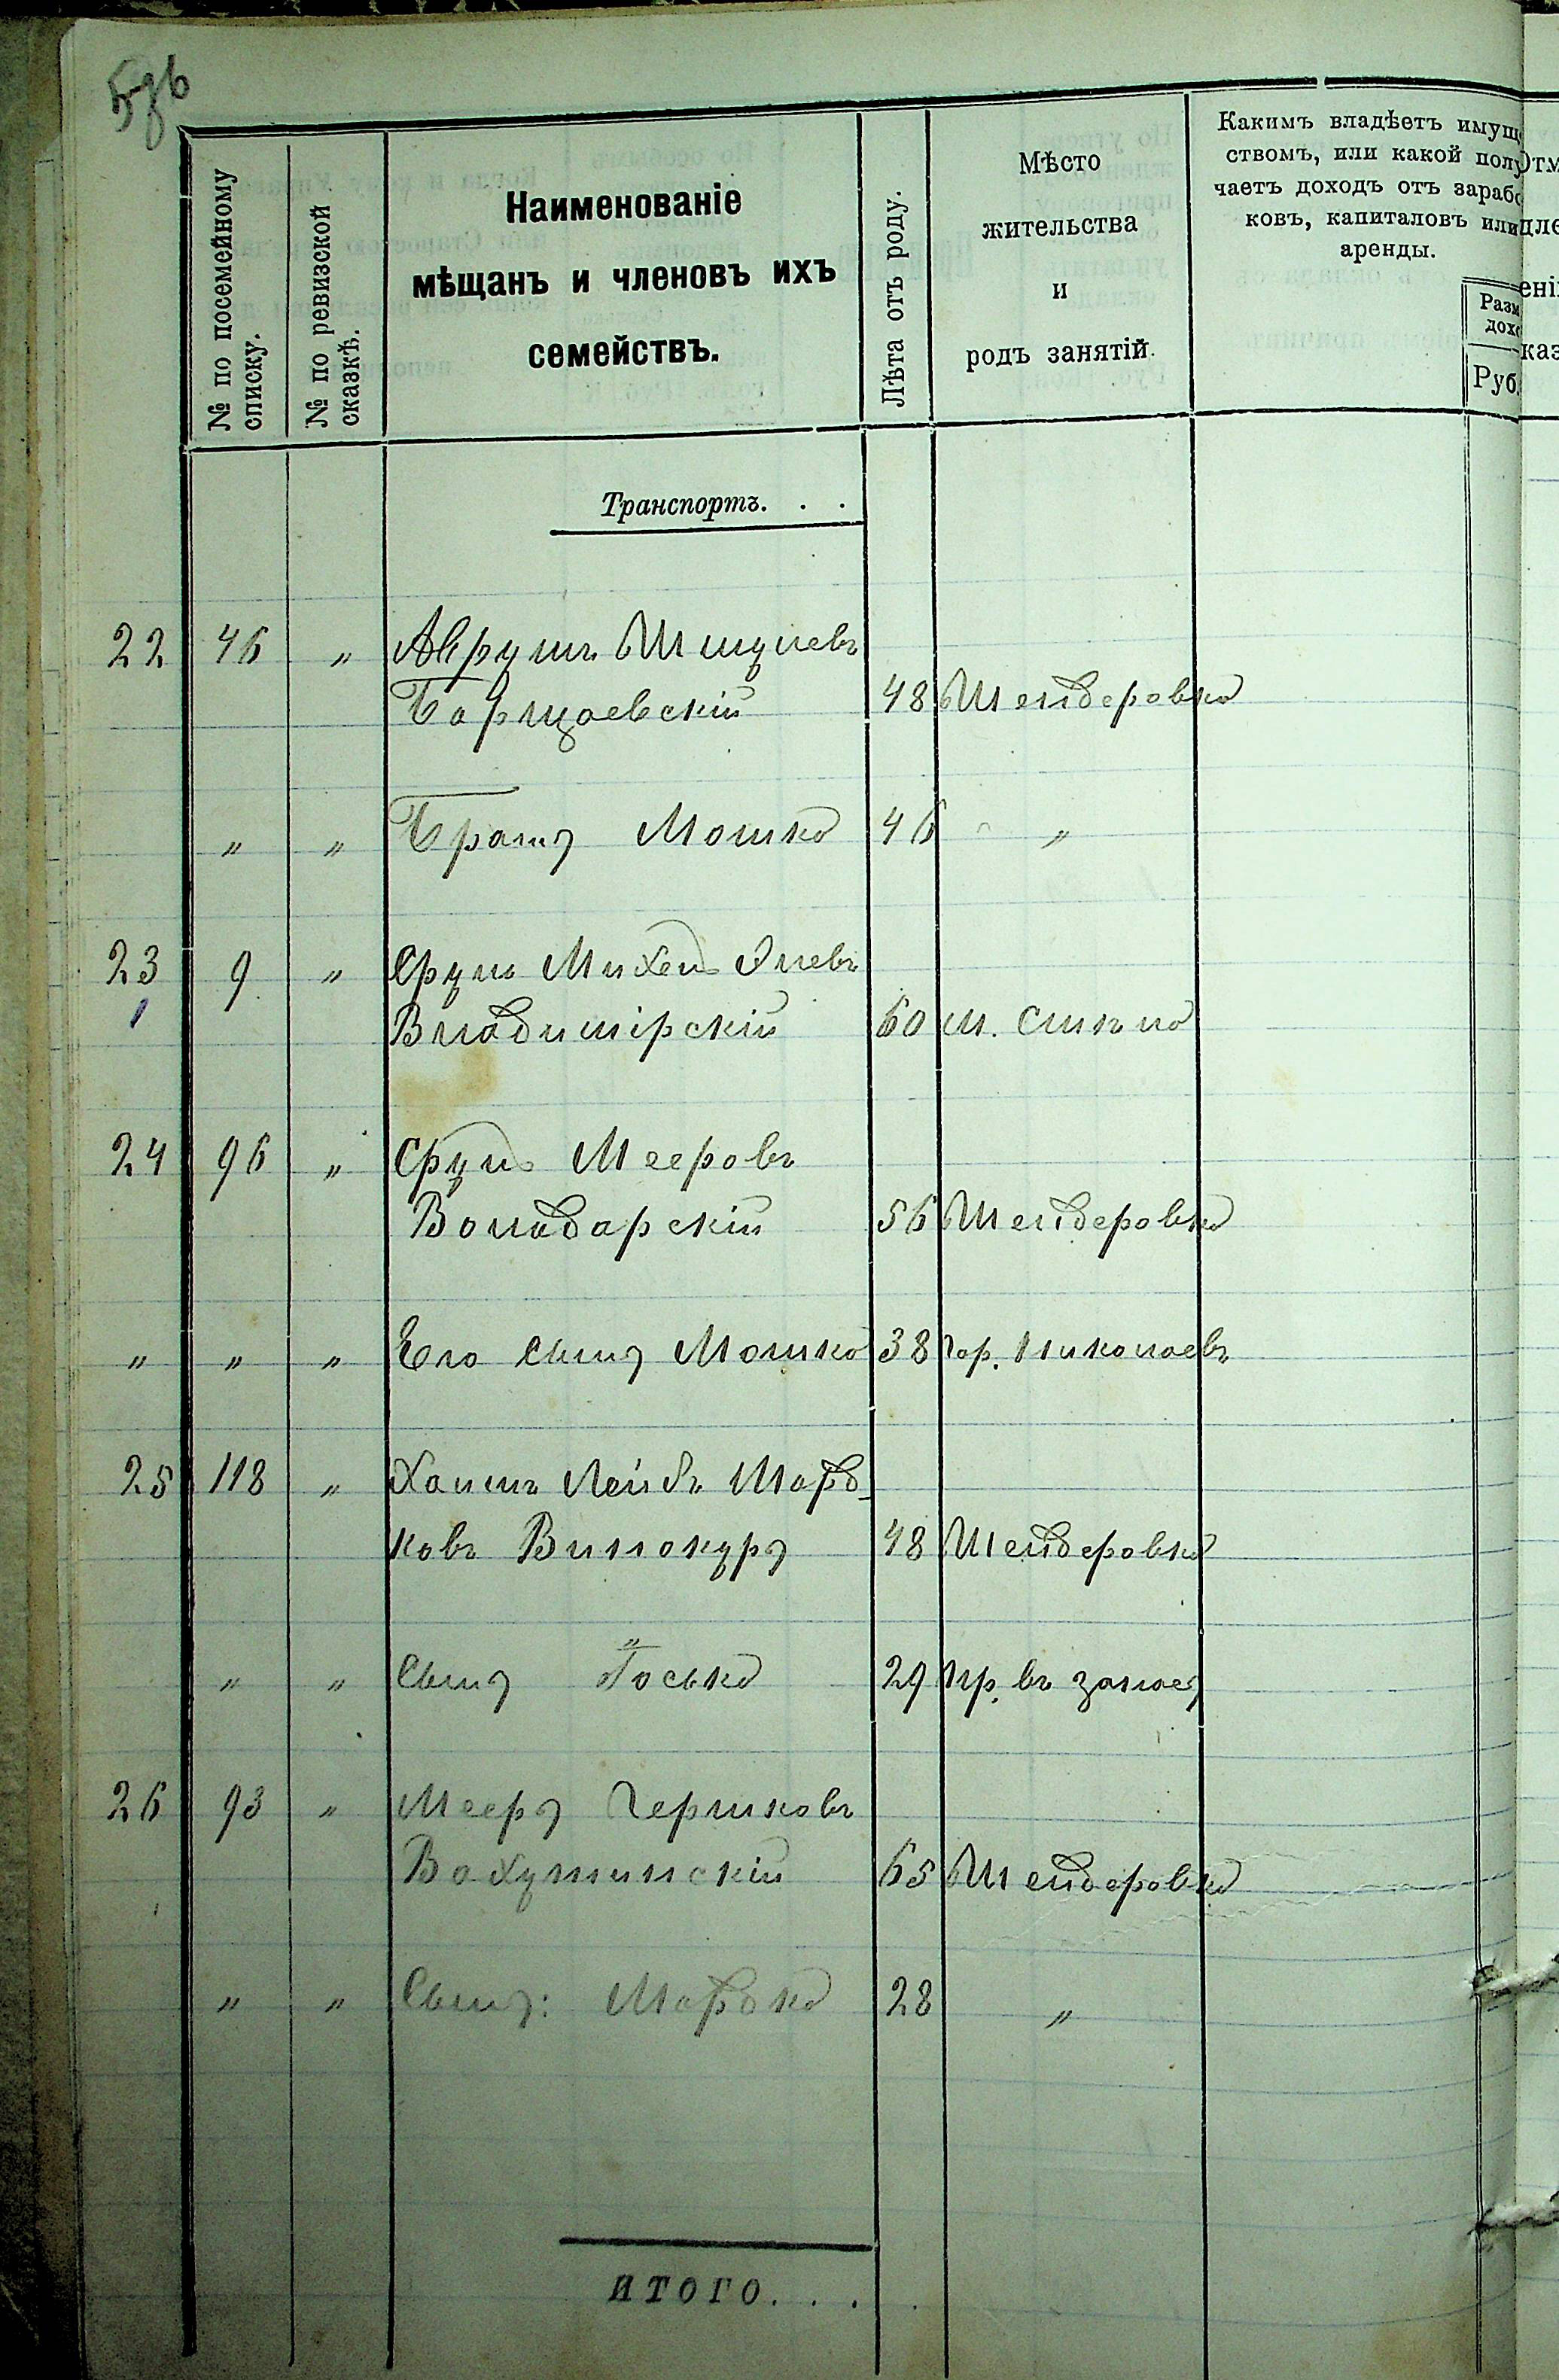 № по посемейному списку.
№ по ревизской сказкѣ.
Наименованіе
мѣщанъ и членовъ ихъ
семействъ.
Лѣта отъ роду.
Мѣсто
жительства
и
родъ занятій.
Какимъ владѣетъ имуще
ствомъ, или какой полу
чаетъ доходъ отъ зарабо
ковъ, капиталовъ или
аренды.
Разм
дохо
Руб.
Транспортъ. . .
22 46 " Аврумъ
Борщаевскій 48 Шендеровка
" " Братъ Мошко 46 "
23 9 " Сруль Михель
Владимірскій 60 м.
24 96 " Сруль Мееровъ
Володарскій 56 Шендеровка
" " " Его сынъ Мошко 38 гор. Николаевъ
25 118 " Хаимъ Лейбъ Морд-
ковъ Винокуръ 48 Шендеровка
" " Сынъ Госько 29
26 93 " Мееръ Гершковъ
Вахутинскій 65 Шендеровка
" " Сынъ: Мордко 28 "
ИТОГО. . .